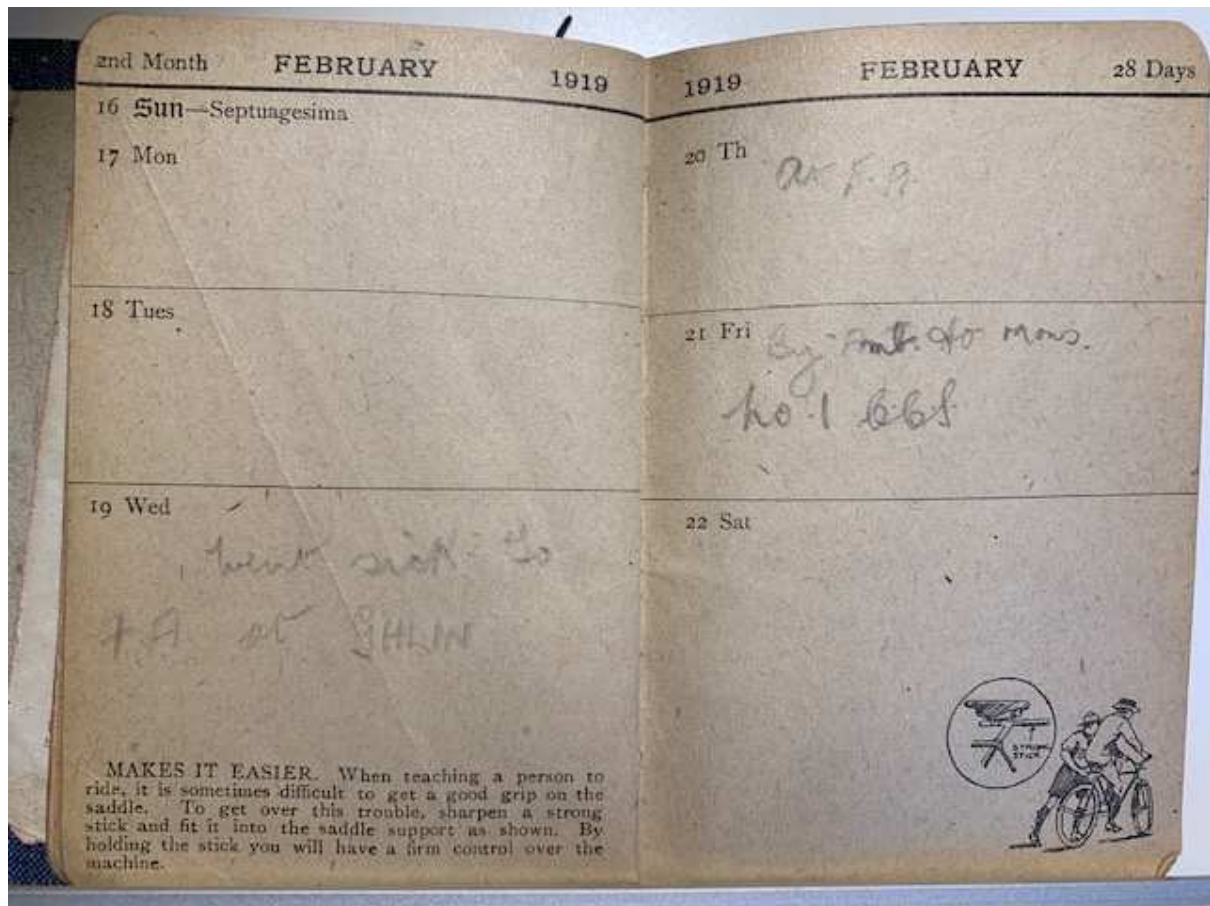 2nd Month FEBRUARY 1919
16 Sun—Septuagesima
17 Mon
18 Tues
19 Wed
Went sick to
FA at GHLIN
MAKES IT EASIER. When teaching a person to
ride, it is sometimes difficult to get a good grip on the
saddle. To get over this trouble, sharpen a strong
stick and fit it into the saddle support as shown. By
holding the stick you will have a firm control over the
machine.
1919 FEBRUARY 28 Days
20 Th
At F.A.
21 Fri
By Amb. to Mons.
No. 1 CCS
22 Sat
STRONG
STICK